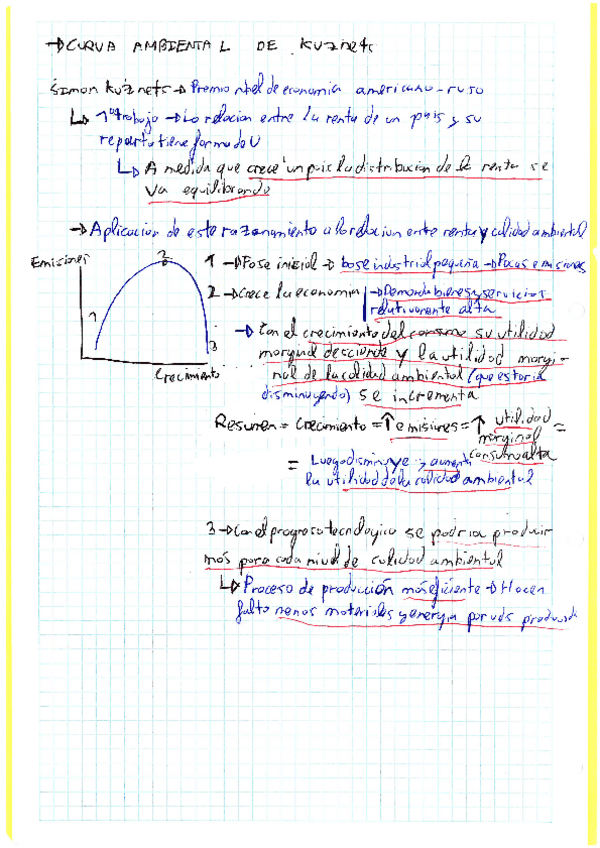 →CURVA AMBIENTAL DE Kuznets
Simon Kuznets → Premio nbel de economia americano-ruso
↳ 1er trabajo → La relacion entre la renta de un pais y su
reparto tiene forma de U
↳ A medida que crece un pais la distribucion de la renta se
va equilibrando
→ Aplicacion de este razonamiento a la relacion entre renta y calidad ambiental
Emisiones
1
2
3
Crecimiento
1 → Fase inicial → base industrial pequeña → Pocas emisiones
2 → Crece la economia → Demanda bienes y servicios
relativamente alta
→ Con el crecimiento del consumo su utilidad
marginal decreciente y la utilidad margi-
nal de la calidad ambiental (que estaria
disminuyendo) se incrementa
Resumen = Crecimiento = ↑ emisiones = ↑ utilidad
marginal =
consumo alta
= Luego disminuye y aumenta
la utilidad de la calidad ambiental
3 → Con el progreso tecnologico se podria producir
más para cada nivel de calidad ambiental
↳ Proceso de producción más eficiente → Hacen
falta menos materiales y energia por uds producida